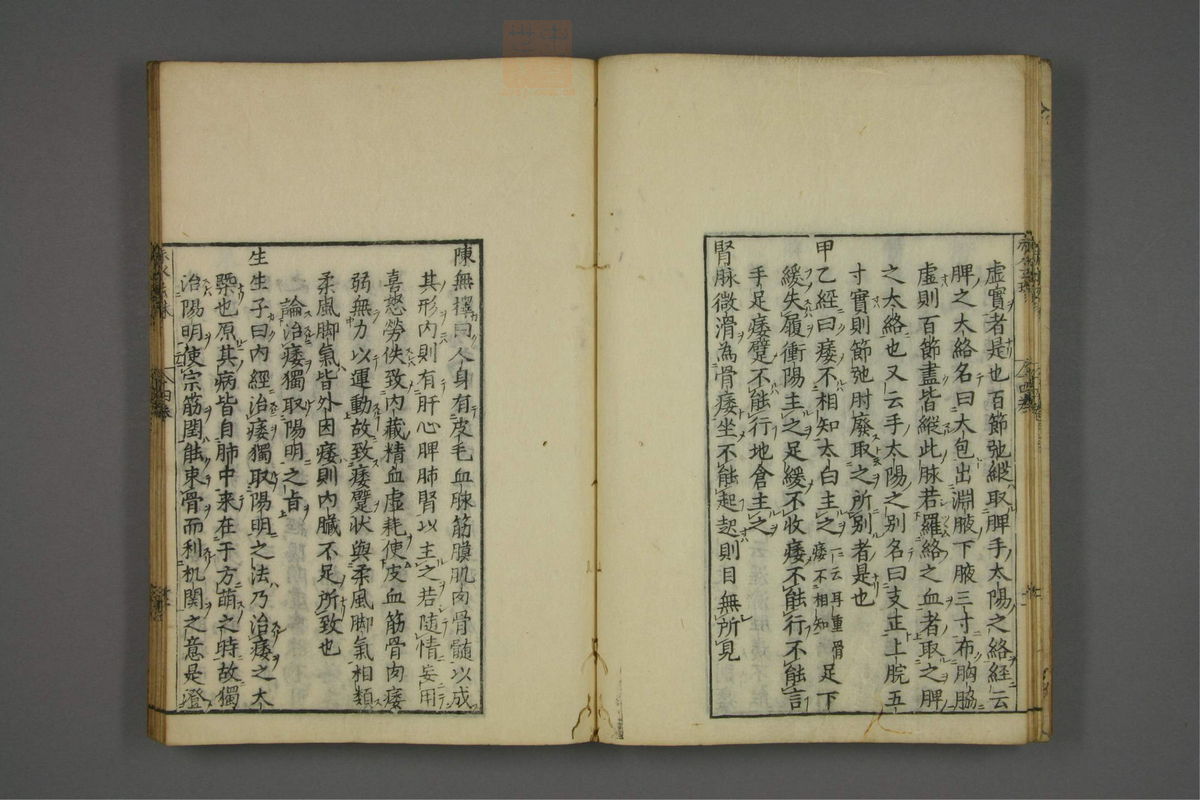 虛實者是也百節弛縱取脾手太陽之絡經云
脾之大絡名曰大包出淵腋下腋三寸布胸脇
虛則百節盡皆縱此脉若羅絡之血者取之脾
之大絡也又云手太陽之别名曰支正上脘五
寸實則節弛肘廢取之所别者是也
甲乙經曰痿不相知太白主之一云耳重眉足下痿不相知
緩失履衝陽主之足緩不收痿不能行不能言
手足痿躄不能行地倉主之
腎脉微滑為骨痿坐不能起起則目無所見
陳無擇曰人身有皮毛血脉筋膜肌肉骨髓以成
其形內則有肝心脾肺腎以主之若隨情妄用
喜怒勞佚致內藏精血虛耗使皮血筋骨肉痿
弱無力以運動故致痿躄状與柔風脚氣相類
柔風脚氣皆外因痿則內臟不足所致也
論治痿獨取陽明之旨
生生子曰內經治痿獨取陽明之法乃治痿之大
槩也原其病皆自肺中来在于方萌之時故獨
治陽明使宗筋潤能束骨而利机関之意是澄